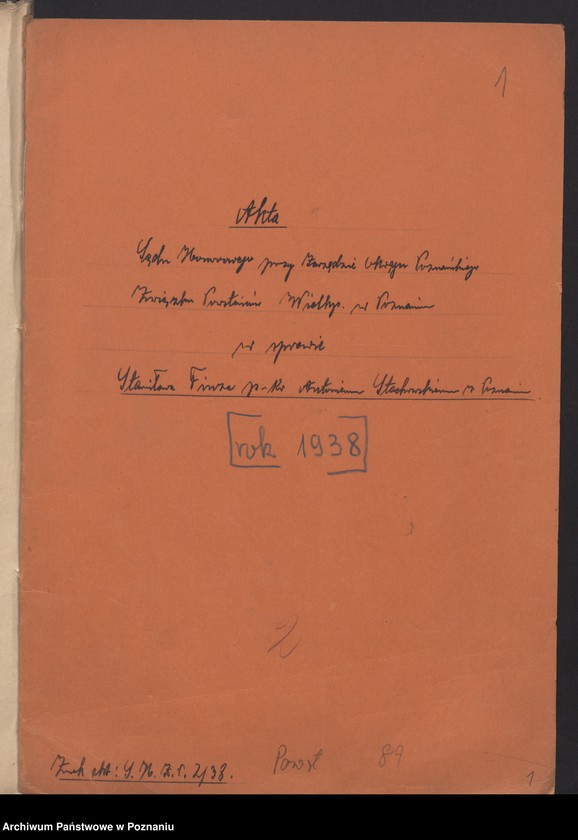 1
Akta
Sądu Honorowego przy Zarządzie Okręgu Poznańskiego
Związku Powstańców Wielkp. w Poznaniu
w sprawie
Stanisława p-ko Antoniemu Stachowskiemu z Poznania
[rok 1938]
2
Znak akt: S. H. Z. P. 2/38.
Powst 89
1
Archiwum Państwowe w Poznaniu